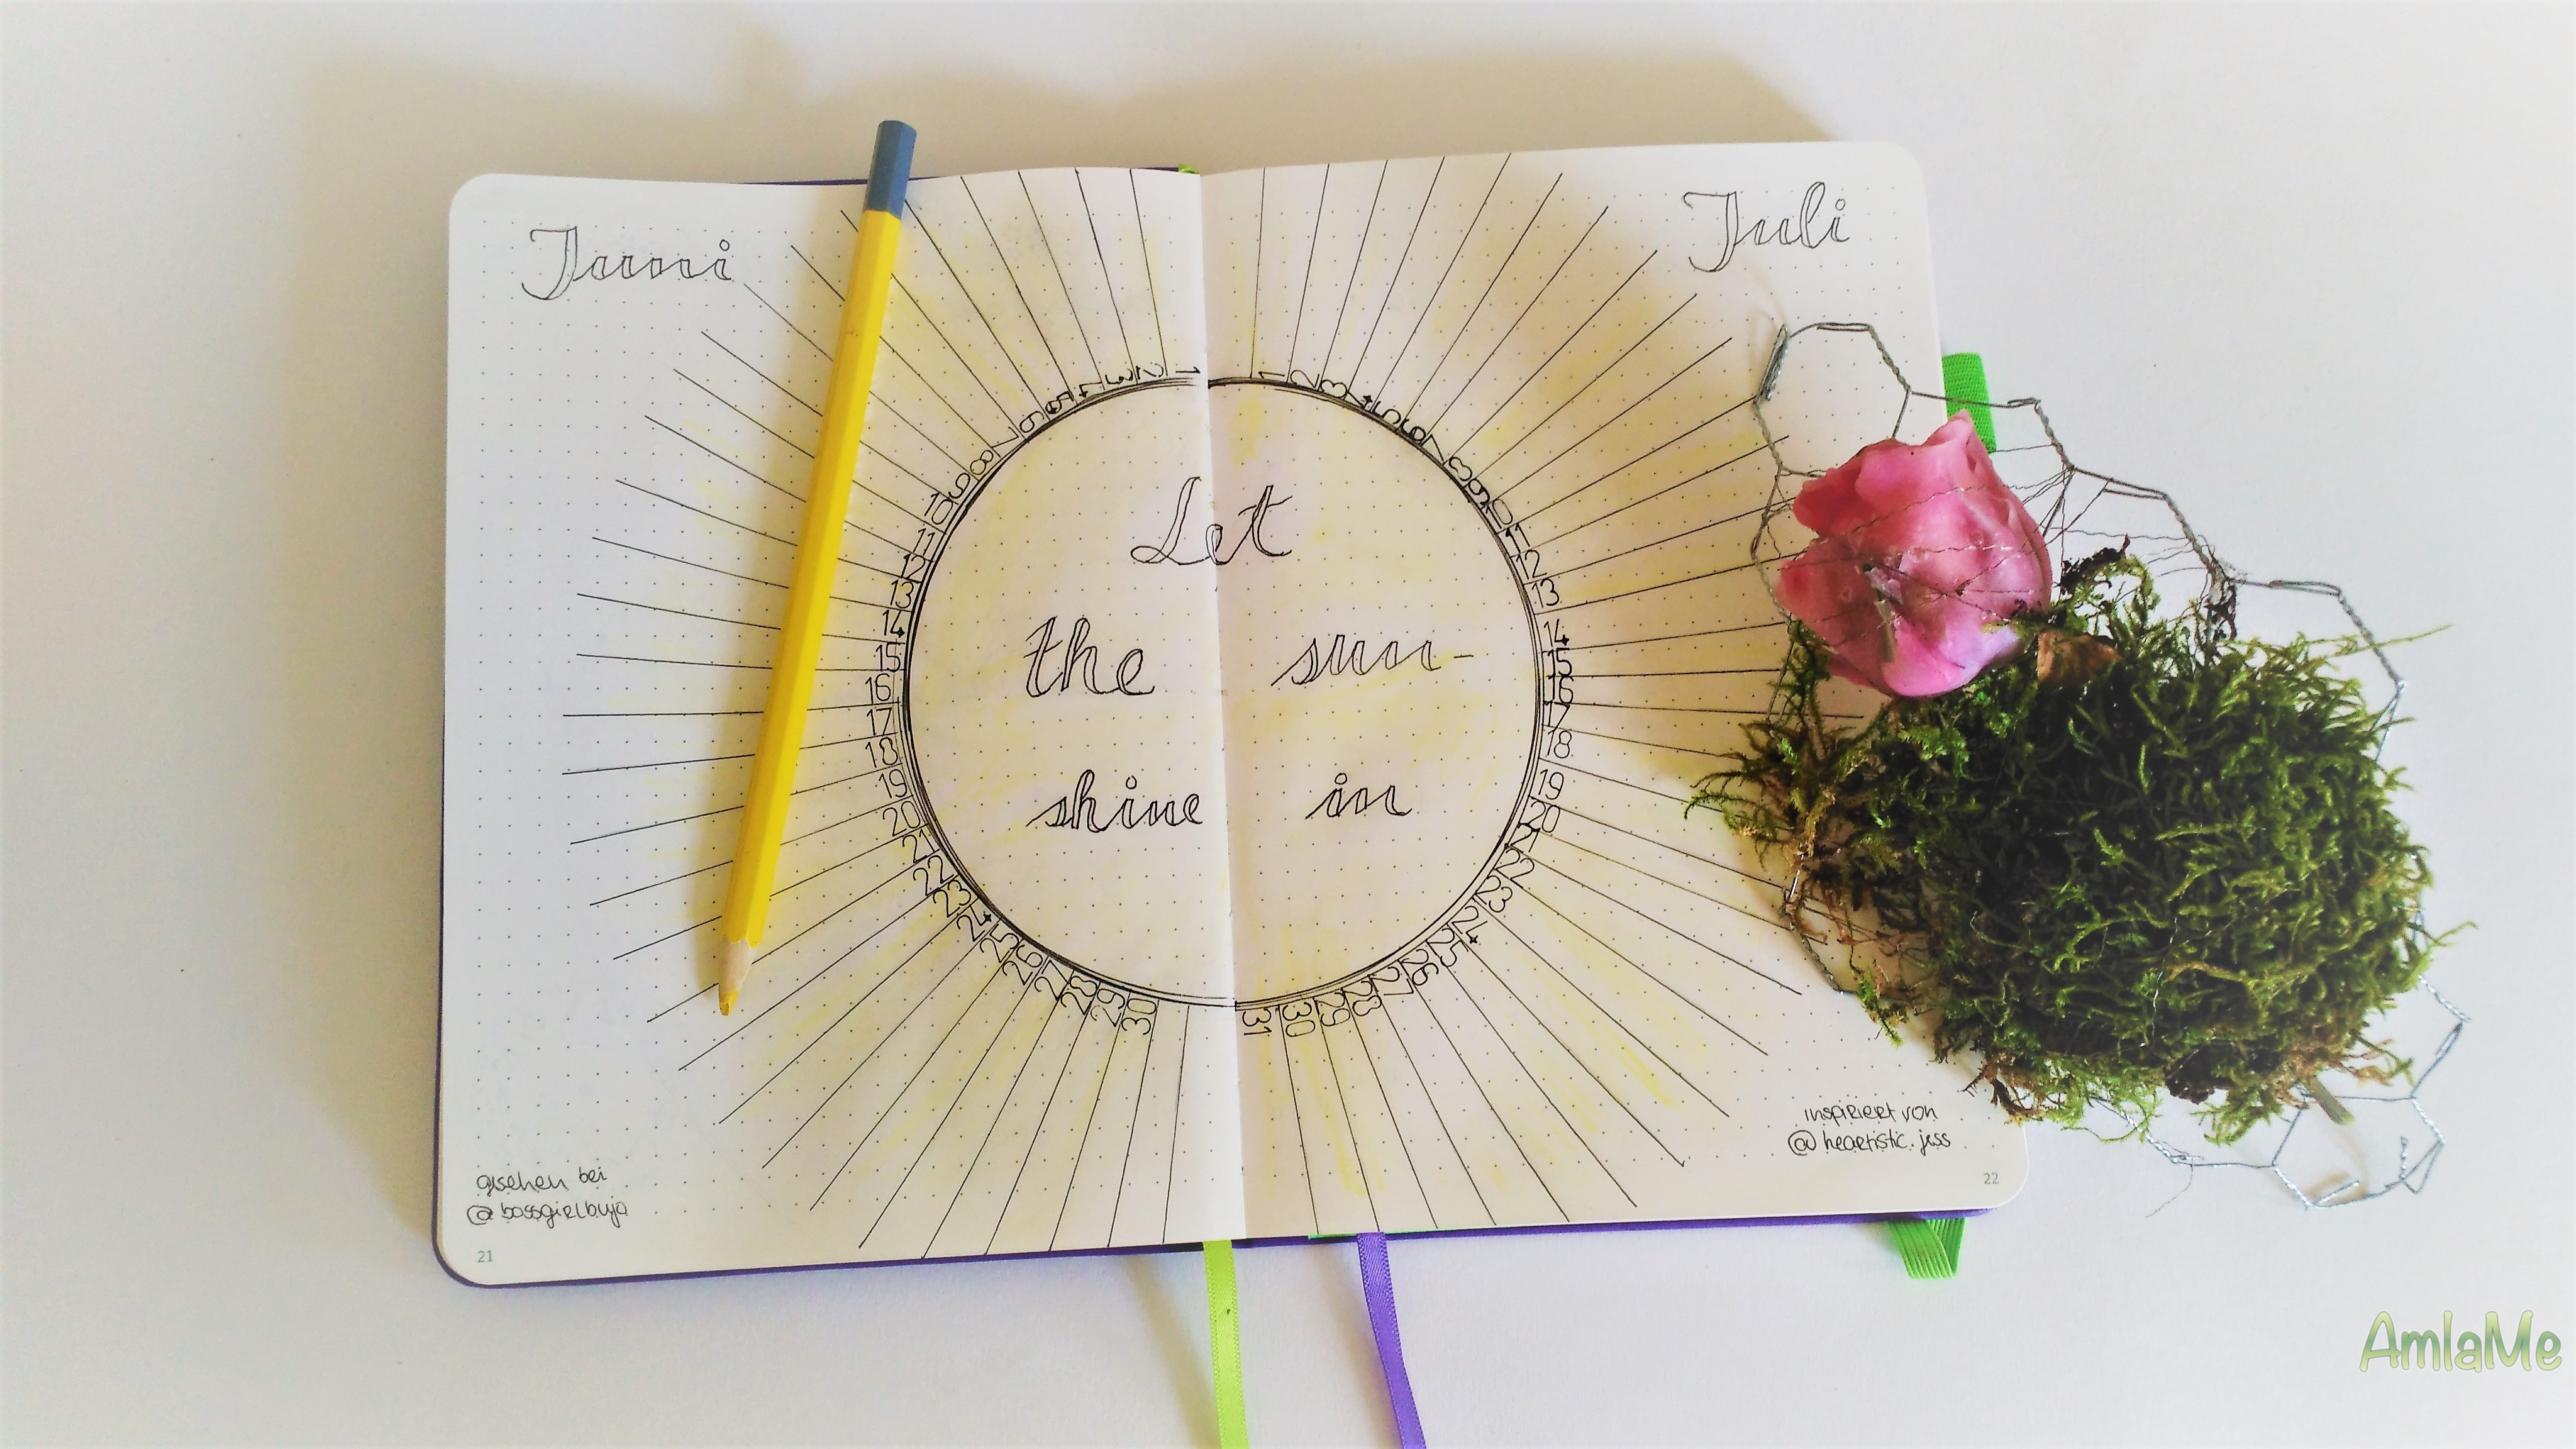 Juni
Juli
1
2
3
4
5
6
7
8
9
10
11
12
13
14
15
16
17
18
19
20
21
22
23
24
25
26
27
28
29
30
1
2
3
4
5
6
7
8
9
10
11
12
13
14
15
16
17
18
19
20
21
22
23
24
25
26
27
28
29
30
31
Let
the sun-
shine in
gesehen bei
@bossgirlbujo
21
inspiriert von
@heartistic.jess
22
AmlaMe